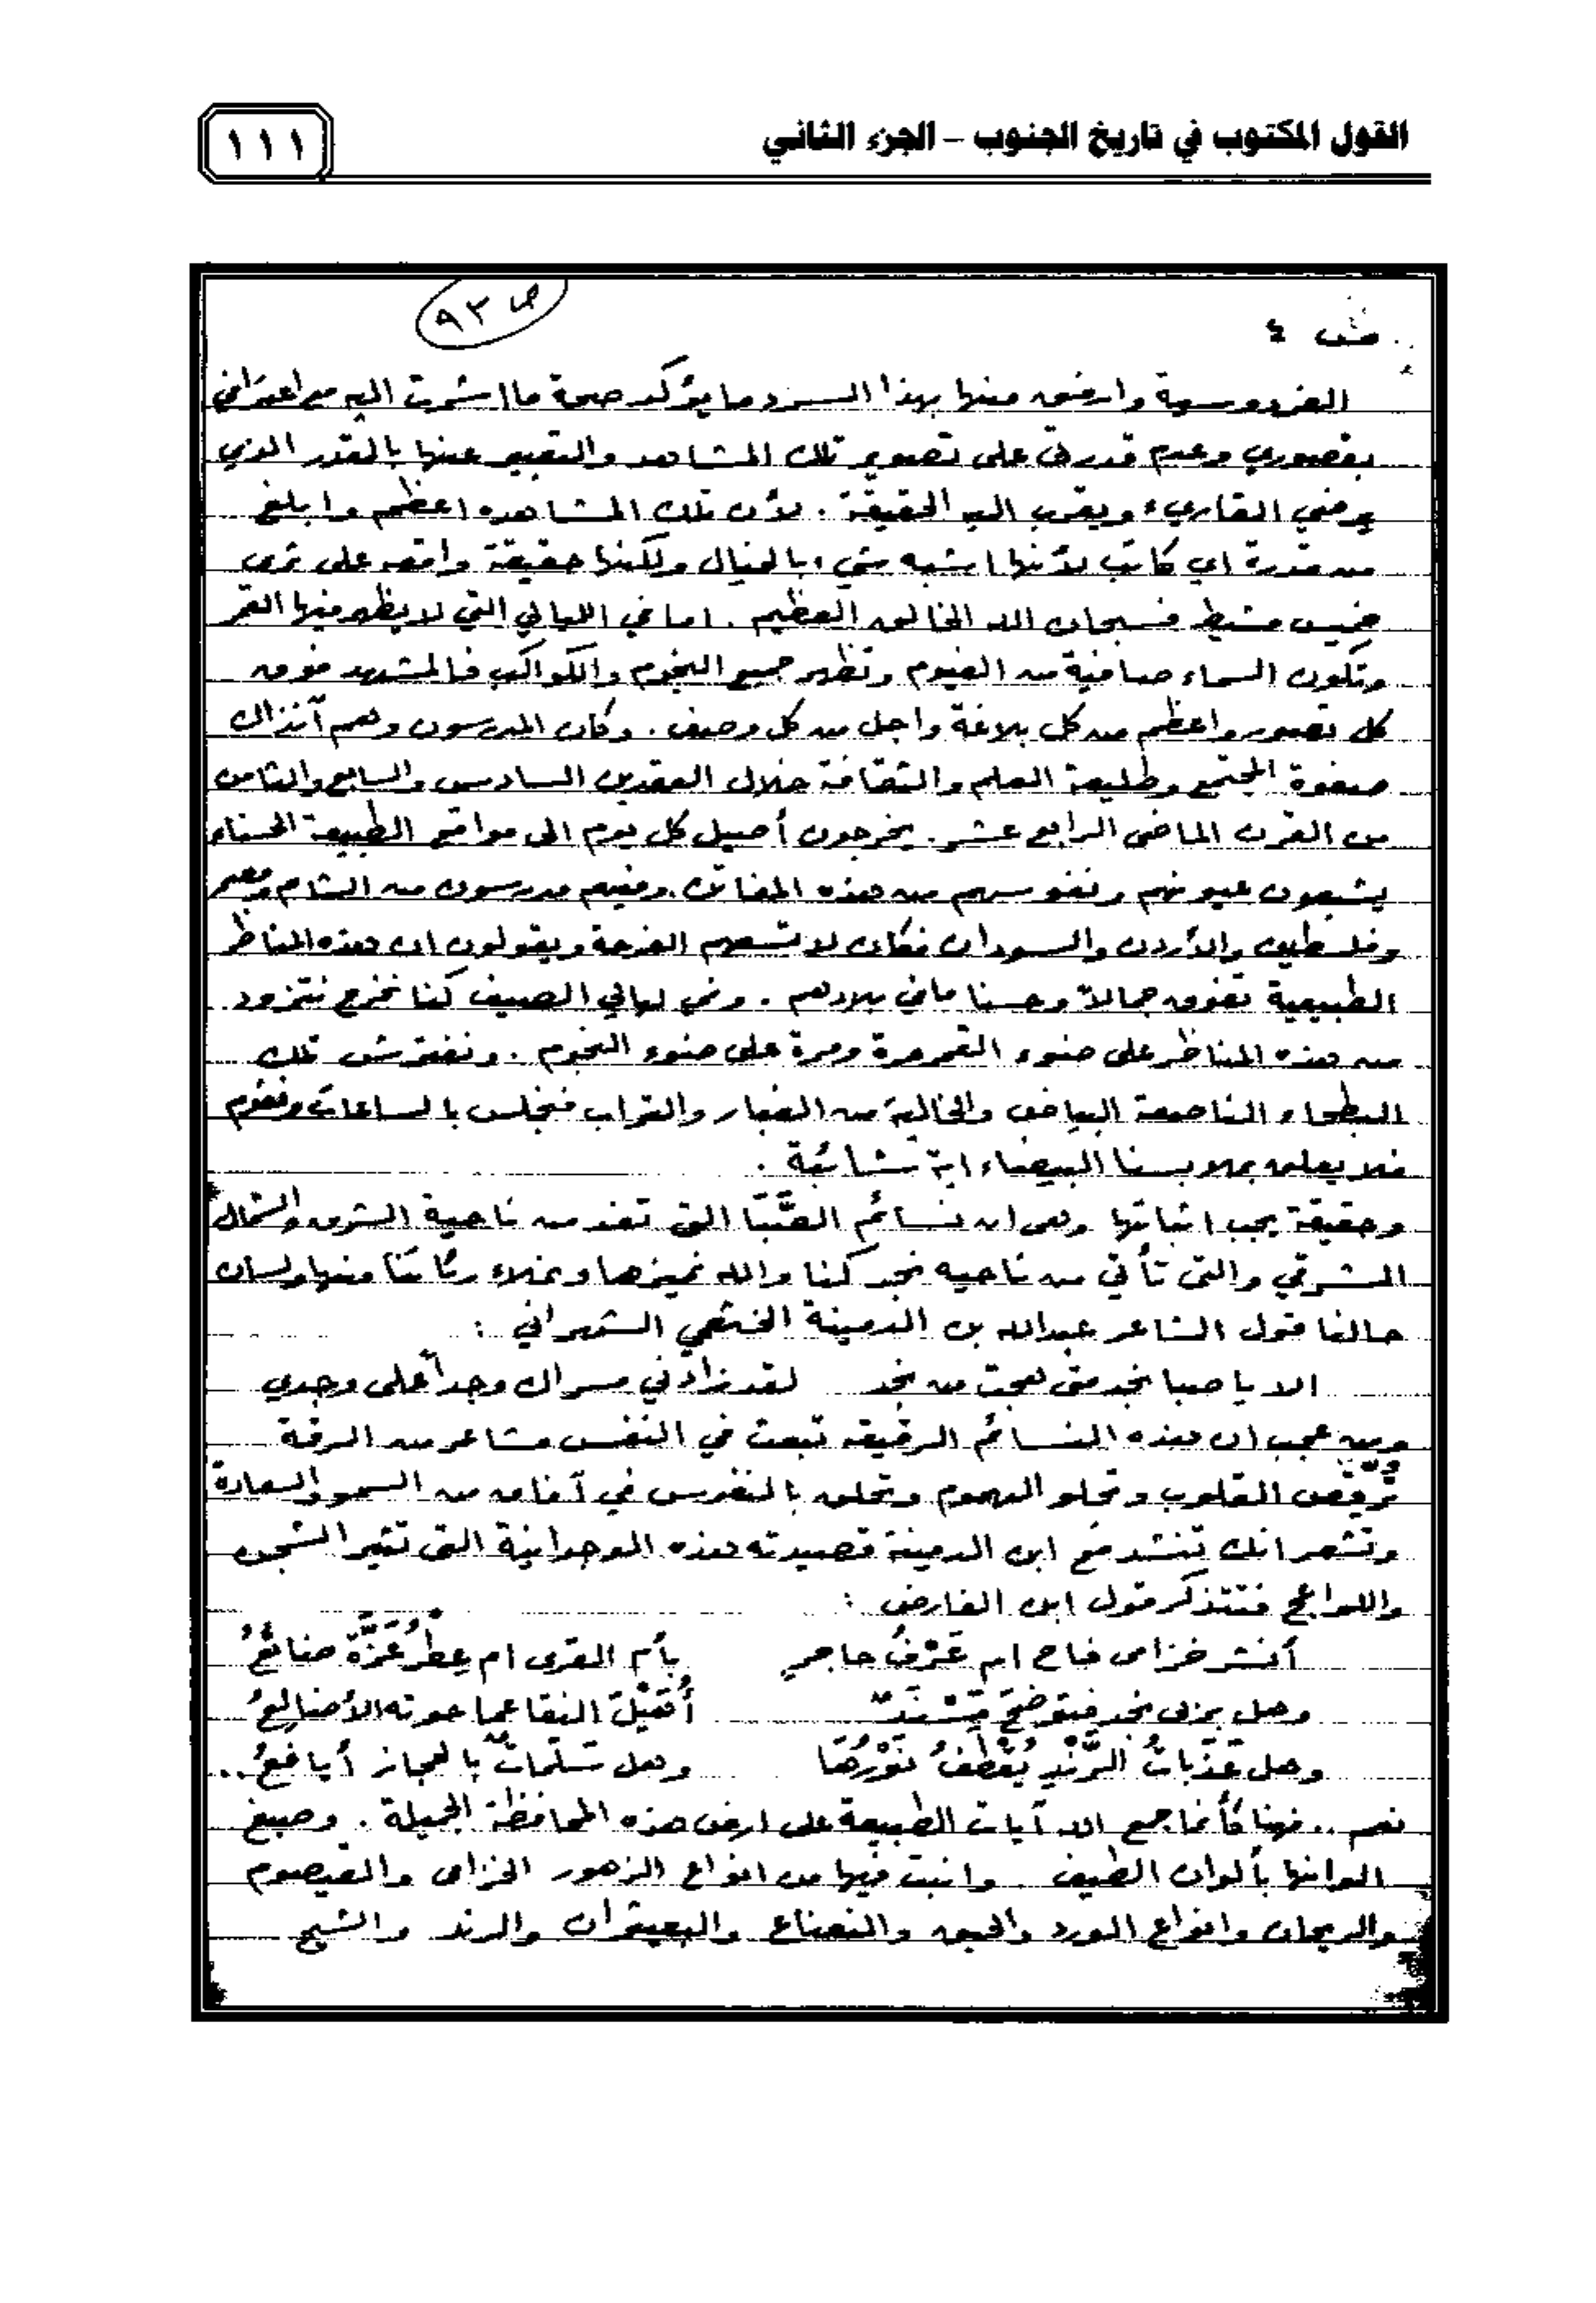 القول المكتوب في تاريخ الجنوب – الجزء الثاني
١١١
ص ٩٣
٤
الفردوسية وارفق منها بهذا السرد ما يؤكد صحة ما اشرت اليه من اعترافي
بقصوري وعدم قدرتي على تصوير تلك المشاهد والتعبير عنها بالقدر الذي
يرضي القاريء ويقرب اليه الحقيقة . لأن تلك المشاهده اعظم وابلغ
من قدرة اي كاتب لأنها اشبه شيء بالخيال ولكنها حقيقة واقعه على ثرى
خميس مشيط فسبحان الله الخالق العظيم . اما في الليالي التي لا يظهر فيها القمر
وتكون السماء صافية من الغيوم وتظهر جميع النجوم والكواكب فالمشهد فوق
كل تصور واعظم من كل بلاغة واجل من كل وصف . وكان المدرسون وهم آنذاك
صفوة المجتمع وطليعة العلم والثقافة خلال العقدين السادس والسابع والثامن
من القرن الماضي الرابع عشر . يخرجون أصيل كل يوم الى مواقع الطبيعة الحسناء
يشبعون عيونهم ونفوسهم من هذه المفاتن . وفيهم مدرسون من الشام ومصر
وفلسطين والأردن والسودان فكان لا تسعهم الفرحة ويقولون ان هذه المناظر
الطبيعية تفوق جمالاً وحسنا ما في بلادهم . وفي ليالي الصيف كنا نخرج نتزود
من هذه المناظر على ضوء القمر مرة ومرة على ضوء النجوم . ونفترش تلك
البطحاء الناصعة البياض والخالية من الغبار والتراب فنجلس بالساعات ونقوم
فلا يعلق بملابسنا البيضاء اية شائبة .
وحقيقة يجب اثباتها وهي ان نسائم الصَّبَا التي تفد من ناحية الشرق والشمال
الشرقي والتي تأتي من ناحيه نجد كنا والله نميزها ونملاء رئاتنا منها ولسان
حالنا قول الشاعر عبدالله بن الدمينة الخثعمي الشهراني :
الا يا صبا نجد متى هجت من نجد لقد زادني مسراك وجداً على وجدي
ومن عجب ان هذه النسائم الرقيقه تبعث في النفس مشاعر من الرقة
ترقص القلوب وتجلو الهموم وتحلق بالنفوس في آفاق من السمو والسعادة
وتشعر انك تنشد مع ابن الدمينة قصيدته هذه الوجدانية التي تثير الشجن
واللواعج فتتذكر قول ابن الفارض :
أنشر خزامى فاح ام عَرْفُ حاجرٍ بأم القرى ام عِطْرُ عَزَّةَ ضائعُ
وهل بربى نجد فتوضِحَ مُسْنِدٌ أُهَيْلَ النقا عما حوته الأضالِعُ
وهل عَذَبَاتُ الرَّنْدِ يُقْطَفُ نَوْرُهَا وهل سَلَمَاتٌ بالحجاز أيافعُ ..
نعم .. فهنا كأنما جمع الله آيات الطبيعة على ارض هذه المحافظة الجميلة . وصبغ
الوانها بألوان الطيف . وانبت فيها من انواع الزهور الخزامى والقيصوم
والريحان وانواع الورد والحبق والنعناع والبعيثران والرند والشيح